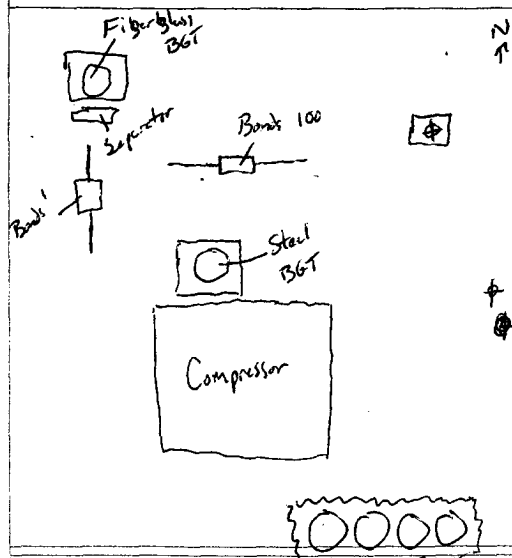 Fiberglass
BGT
N
Separator
Bonds 100
Bonds
Steel
BGT
Compressor